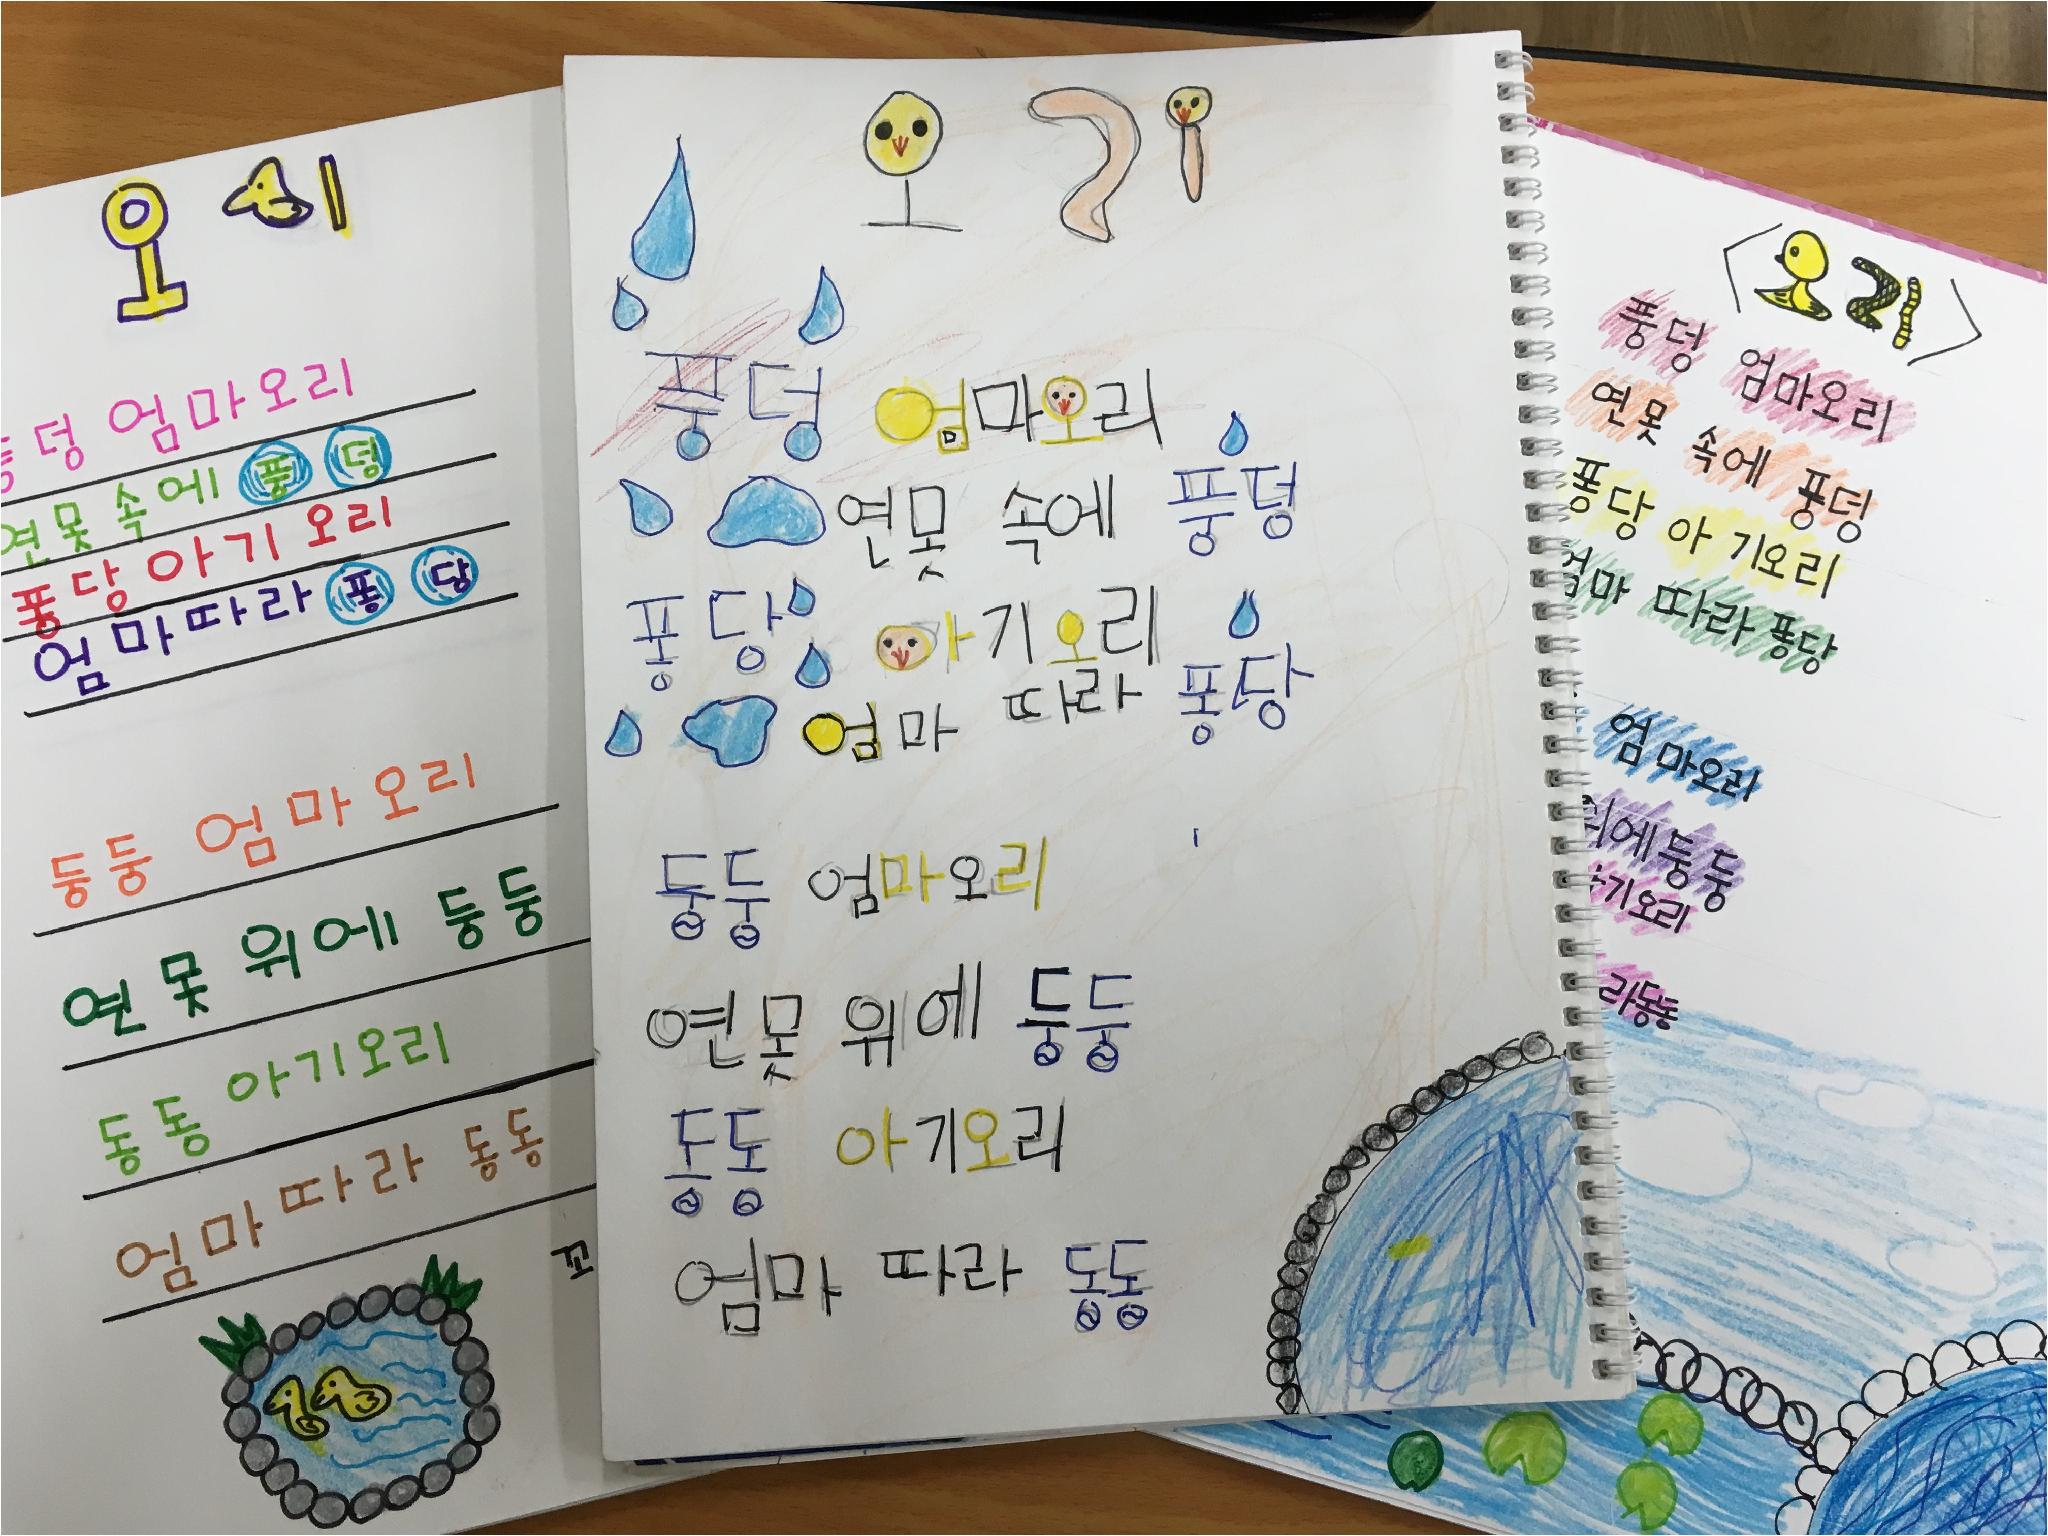 오리
풍덩 엄마오리
연못 속에 풍덩
퐁당 아기 오리
엄마 따라 퐁당
둥둥 엄마 오리
연못 위에 둥둥
동동 아기오리
엄마 따라 동동
오리
풍덩 엄마오리
연못 속에 풍덩
퐁당 아기오리
엄마 따라 퐁당
둥둥 엄마오리
연못 위에 둥둥
동동 아기오리
엄마 따라 동동
<오리>
풍덩 엄마오리
연못 속에 풍덩
퐁당 아기오리
엄마 따라 퐁당
엄마오리
위에 둥둥
기오리
라동동